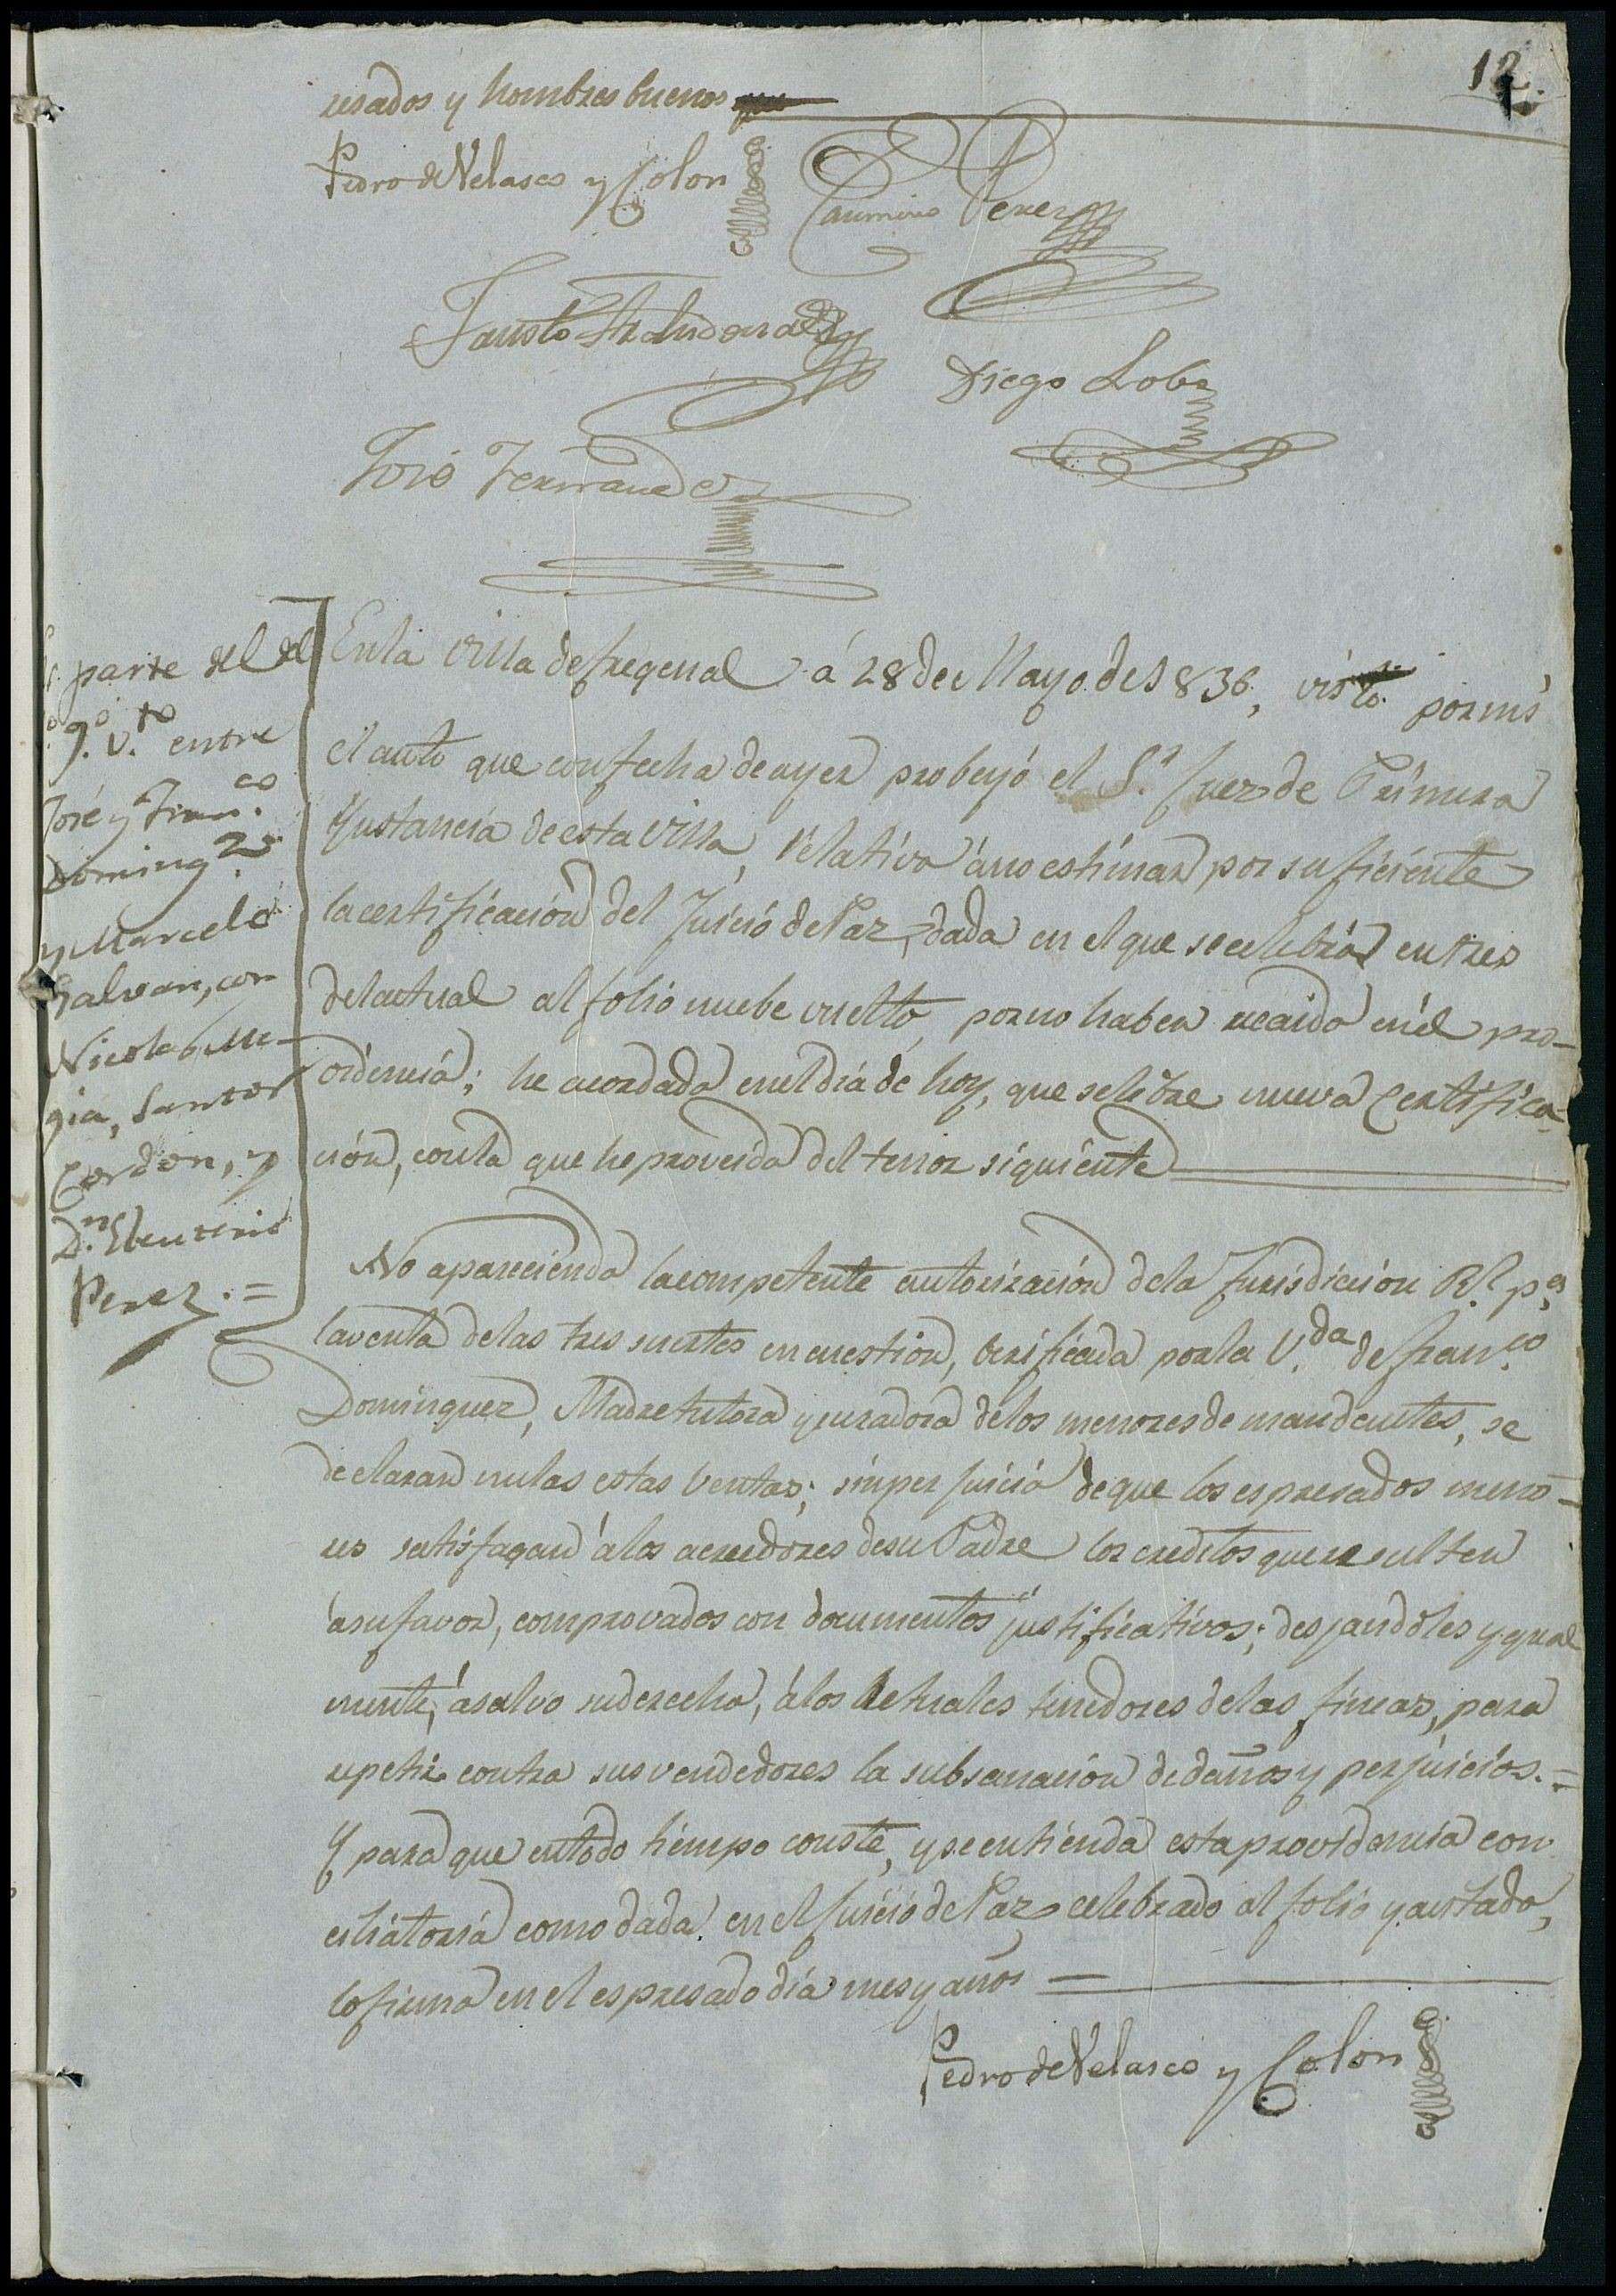 12.
resados y hombres buenos
Pedro de Velasco y Colon
Casimiro Perez
Fausto
Diego Lobo
José Fernandez
parte del del
9.º v.to entre
José y Fran.co
Doming.z
y Marcelo
Galvan, con
Nicolas Me-
gia, Santos
Cordon, y
D.n Eleuterio
Perez. =
En la Villa de fregenal á 28 de Mayo de 1836, visto por mi
el auto que con fecha de ayer probeyó el S.r Juez de Primera
Ynstancia de esta Villa, relativo á no estimar por suficiente
la certificacion del Juicio de Paz, dada en el que se celebró en tres
del actual al folio nuebe vuelto, por no haber recaido en él pro-
videncia; he acordado en el dia de hoy, que se libre nueva Certifica-
cion, con la que he proveido del tenor siguiente
No apareciendo la competente autorizacion de la Jurisdicion R.l p.a
la venta de las tres suertes en cuestion, berificada por la V.da de fran.co
Dominguez, Madre tutora y curadora de los menores demandantes, se
declaran nulas estas Ventas; sin perjuicio de que los espresados meno-
res satisfagan á los acreedores de su Padre los creditos que resulten
á su favor, comprovados con documentos justificativos; desjandoles ygual
mente, á salvo su derecho, á los actuales tenedores de las fincas, para
repetir contra sus vendedores la subsanacion de daños y perjuicios. =
Y para que en todo tiempo conste, y se entienda esta providencia con
ciliatoria como dada en el Juicio de Paz celebrado al folio ya citado,
lo firmo en el espresado dia mes y año =
Pedro de Velasco y Colon